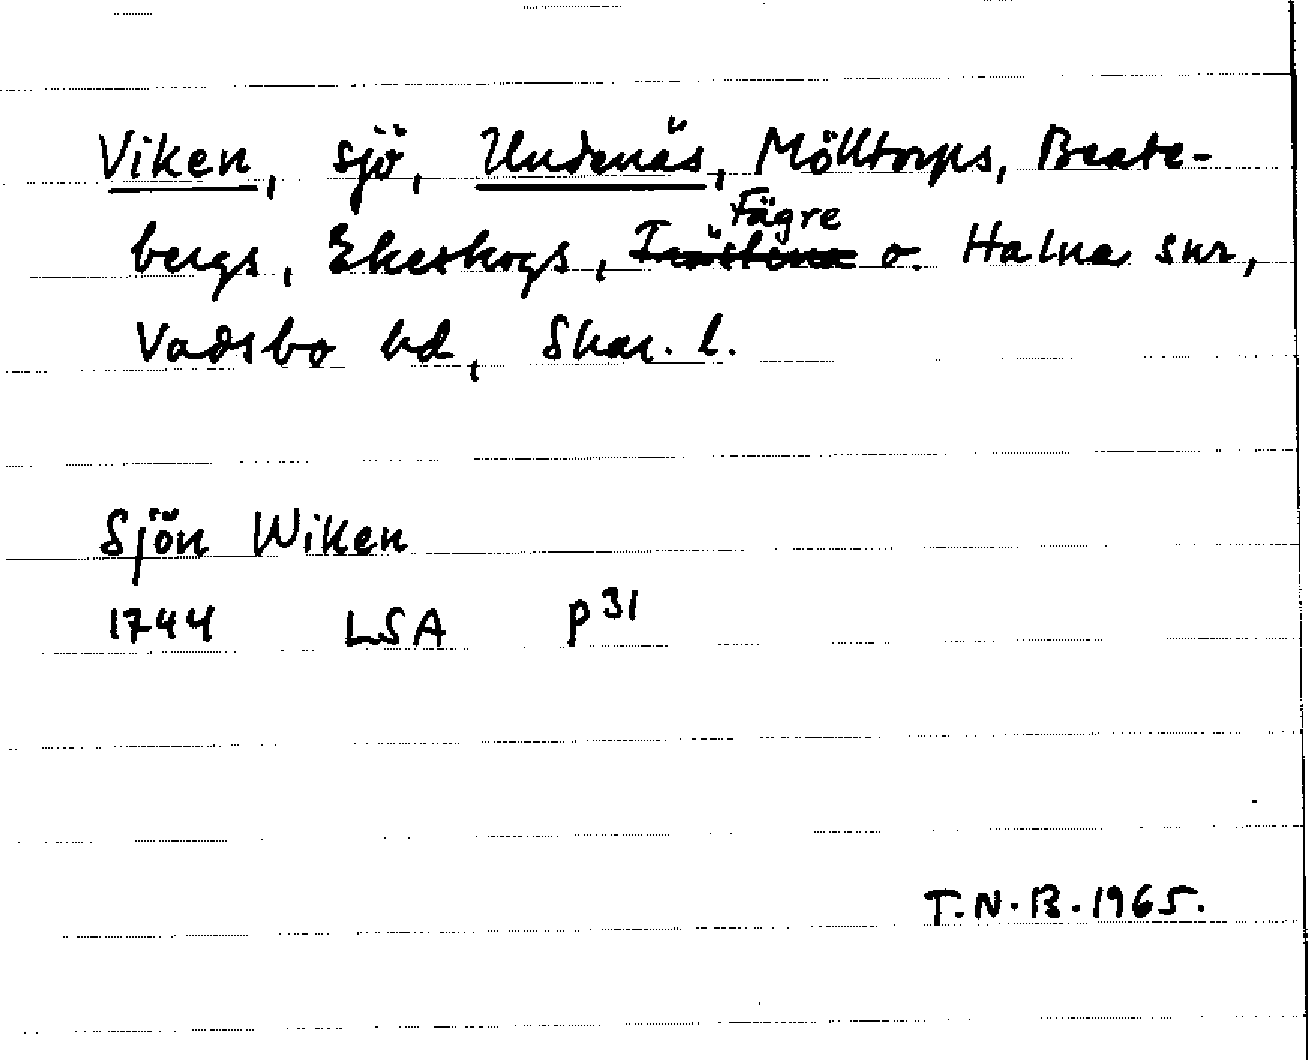 Viken, sjö, Undenäs, Mölltorps, Beate-
bergs, Ekeskogs, Fägre o. Halna snr,
Vadsbo hd, Skar. l.
Sjön Wiken
1744 LSA P 31
T.N.B. 1965.